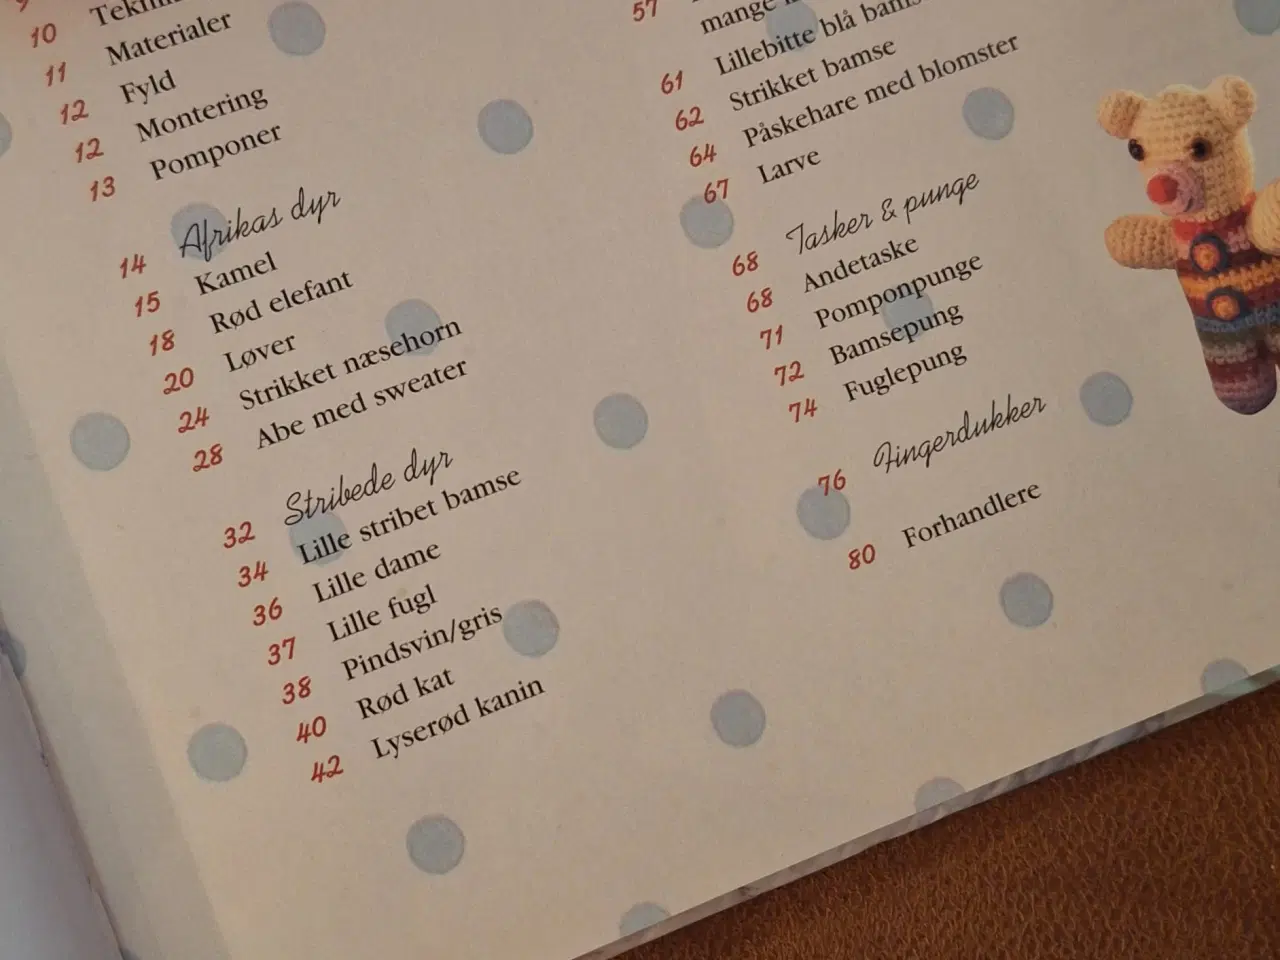 10
11 Materialer
12 Fyld
12 Montering
13 Pomponer
14 Afrikas dyr
15 Kamel
18 Rød elefant
20 Løver
24 Strikket næsehorn
28 Abe med sweater
32 Stribede dyr
34 Lille stribet bamse
36 Lille dame
37 Lille fugl
38 Pindsvin/gris
40 Rød kat
42 Lyserød kanin
57
mange
61 Lillebitte blå
62 Strikket bamse
64 Påskehare med blomster
67 Larve
68 Tasker & punge
68 Andetaske
71 Pomponpunge
72 Bamsepung
74 Fuglepung
76 Fingerdukker
80 Forhandlere